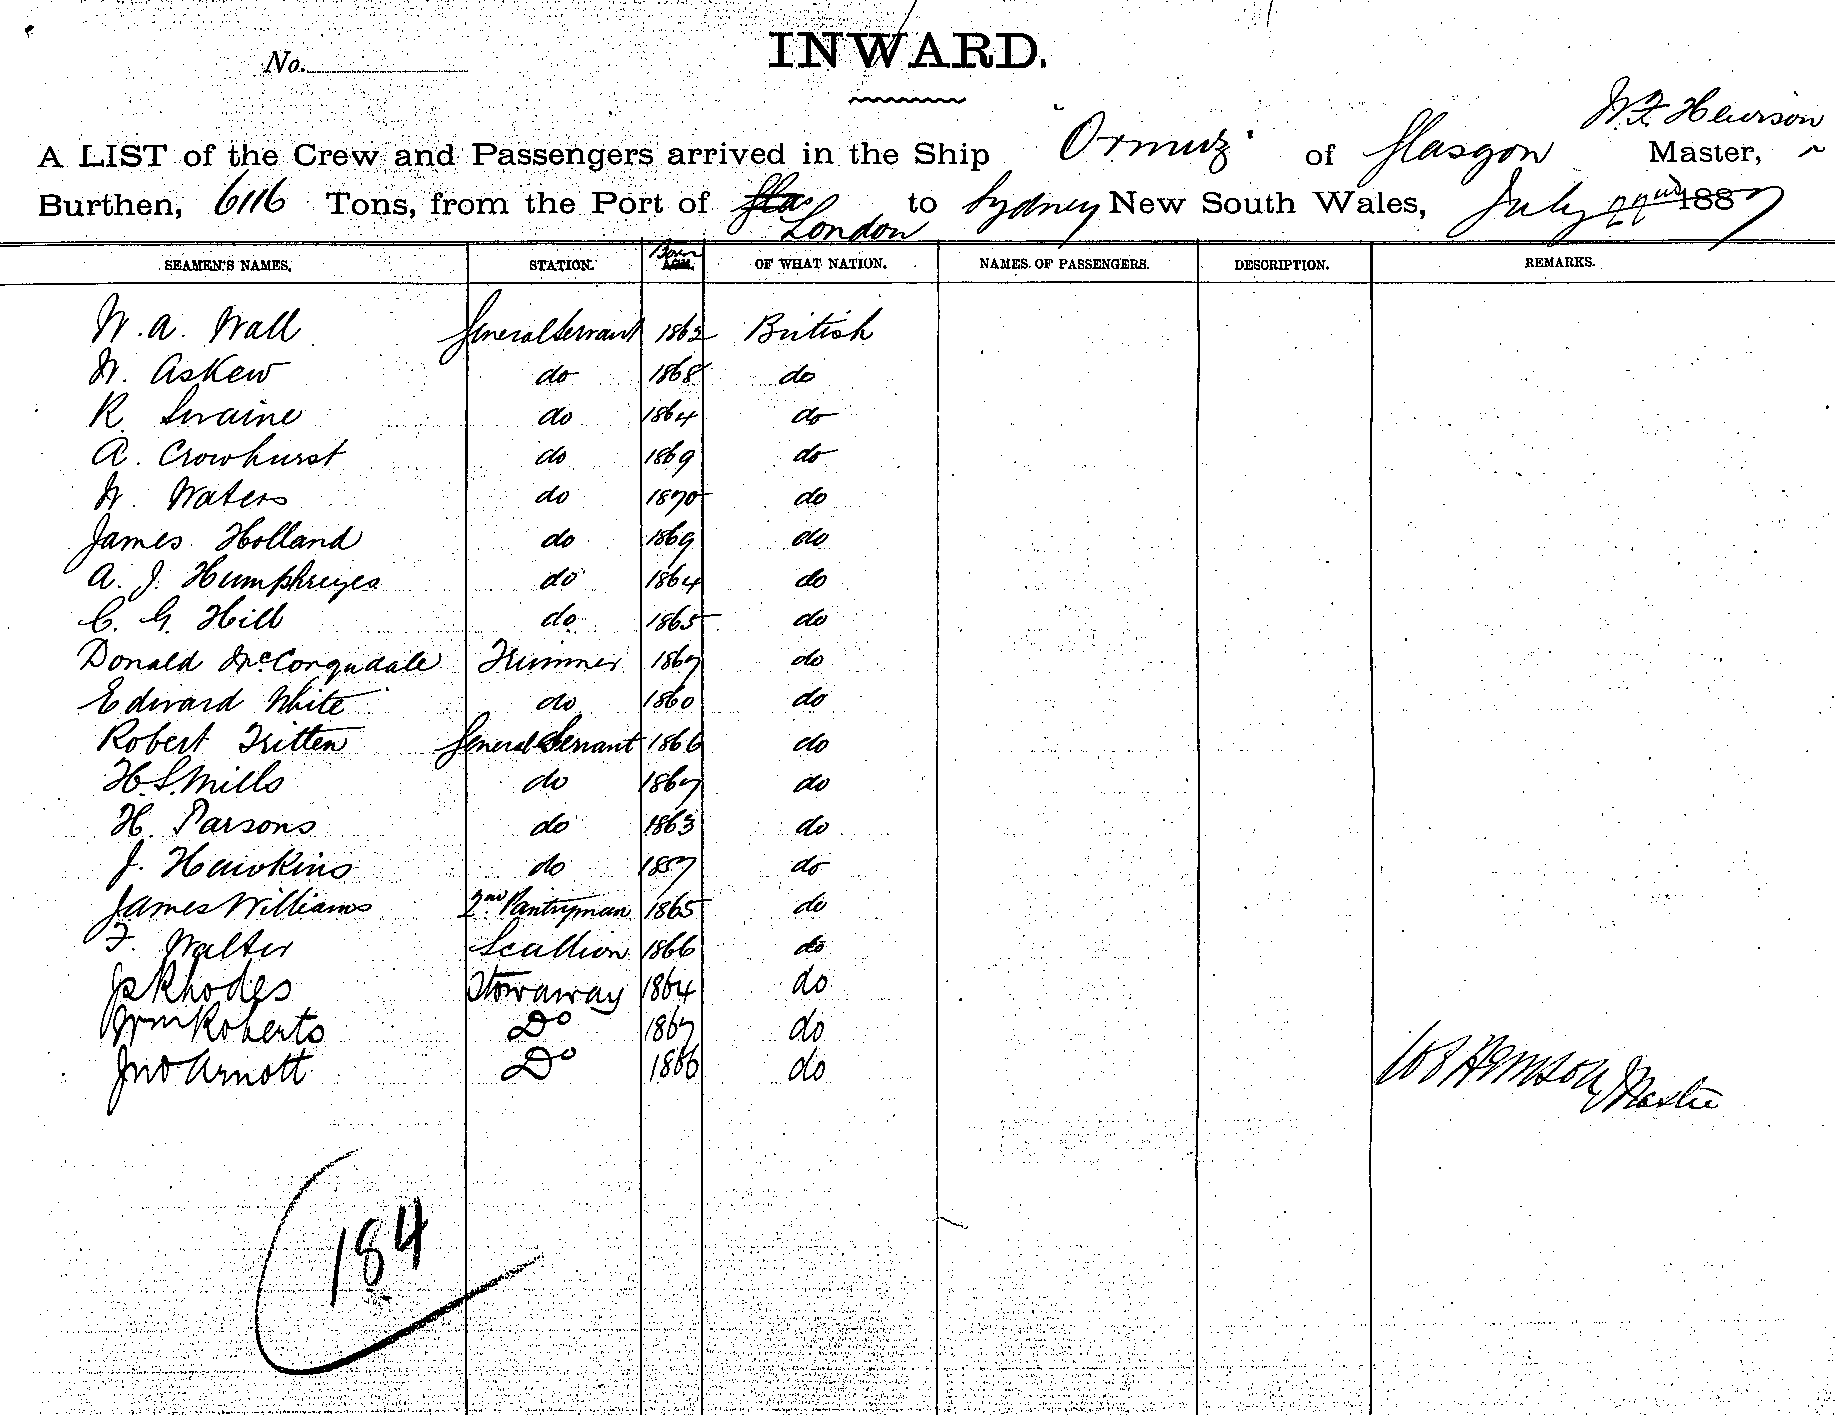 No.
INWARD.
W. F. Hewison
A LIST of the Crew and Passengers arrived in the Ship "Ormuz" of Glasgow Master,
Burthen, 6116 Tons, from the Port of London to Sydney New South Wales, July 22nd 1887
SEAMEN'S NAMES. STATION. Born AGE. OF WHAT NATION. NAMES OF PASSENGERS. DESCRIPTION. REMARKS.
W. A. Wall General Servant 1862 British
W. Askew do 1868 do
R. Seraine do 1864 do
A. Crowhurst do 1869 do
W. Waters do 1870 do
James Holland do 1869 do
A. J. Humphreyes do 1864 do
C. G. Hill do 1865 do
Donald McCorqudale Trimmer 1867 do
Edward White do 1860 do
Robert Tritten General Servant 1866 do
H. S. Mills do 1867 do
H. Parsons do 1863 do
J. Hawkins do 1857 do
James Williams 2nd Pantryman 1865 do
F. Walter Scullion 1866 do
Js Rhodes Stowaway 1864 do
Wm Roberts Do 1867 do
Jno Arnott Do 1866 do
W F Hewison Master
184